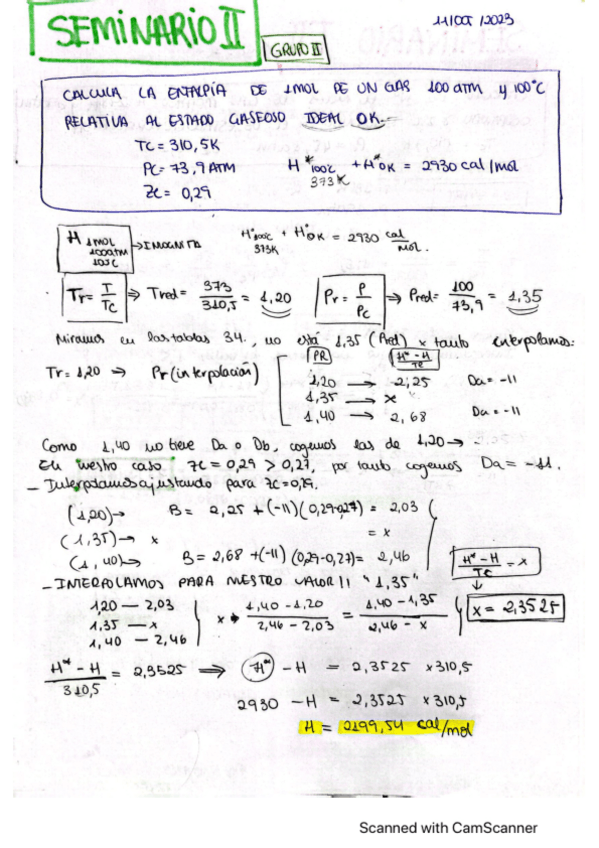 SEMINARIO II
11/OCT/2023
GRUPO II
CALCULA LA ENTALPÍA DE 1MOL DE UN GAS 100 atm y 100°C
RELATIVA AL ESTADO GASEOSO IDEAL OK.
TC = 310,5K
PC = 73,9 ATM H* 100°C 373K + H°0K = 2930 cal/mol
Zc = 0,29
H 1MOL 100ATM 100°C → INCOGNITA H*100°C 373K + H°0K = 2930 cal/mol.
Tr = T/Tc ⇒ Tred = 373/310,5 = 1,20 Pr = P/Pc ⇒ Pred = 100/73,9 = 1,35
Miramos en las tablas 34., no está 1,35 (Pred) x tanto interpolamos:
PR H*-H/TC
Tr = 1,20 ⇒ Pr (interpolación) 1,20 → 2,25 Da = -11
1,35 → x
1,40 → 2,68 Da = -11
Como 1,40 no tiene Da o Db, cogemos las de 1,20 →
En nuestro caso zc = 0,29 > 0,27, por tanto cogemos Da = -11.
- Interpolamos ajustando para zc = 0,29.
(1,20) → B = 2,25 + (-11)(0,29-0,27) = 2,03
(1,35) → x = x
(1,40) → B = 2,68 + (-11)(0,29-0,27) = 2,46
H*-H/TC = x
- INTERPOLAMOS PARA NUESTRO VALOR!! "1,35"
x = 2,3525
1,20 — 2,03
1,35 — x x → 1,40 - 1,20/2,46 - 2,03 = 1,40 - 1,35/2,46 - x
1,40 — 2,46
H*-H/310,5 = 2,3525 ⇒ H* - H = 2,3525 x 310,5
2930 - H = 2,3525 x 310,5
H = 2199,54 cal/mol
Scanned with CamScanner